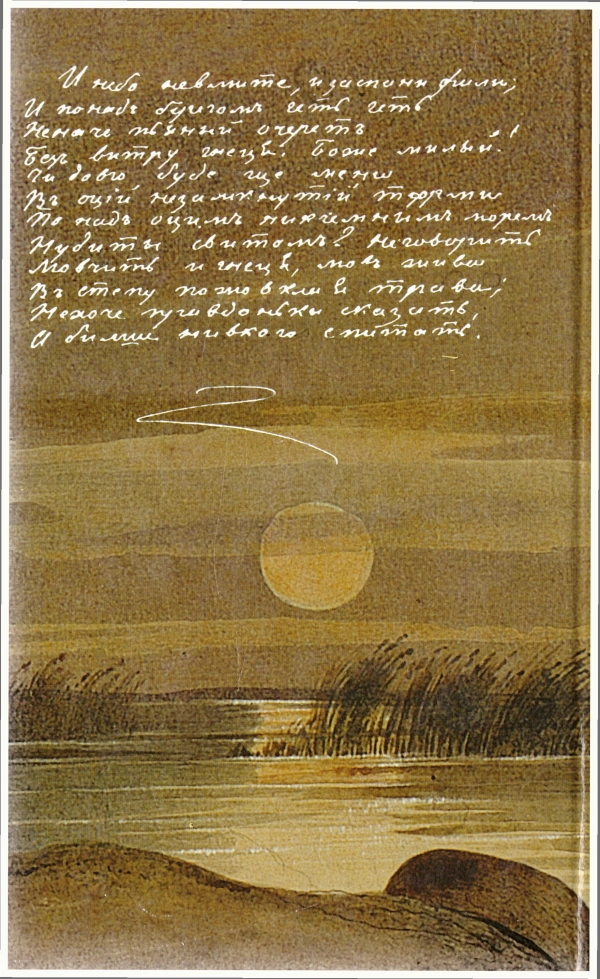 И небо невмите, и заспани хвили;
И понадъ берегомъ геть геть
Неначе пьяный очеретъ
Безъ витру гнеця. Боже милый!
Чи довго буде ще мени
Въ оцій незамкнутій тюрми
По надъ оцимъ никчемнымъ моремъ
Нудыты свитомъ? Неговорить
Мовчить и гнеця, мовъ жива
Въ степу пожовклая трава;
Нехоче правдоньки сказать,
А бильше нивкого спитать.